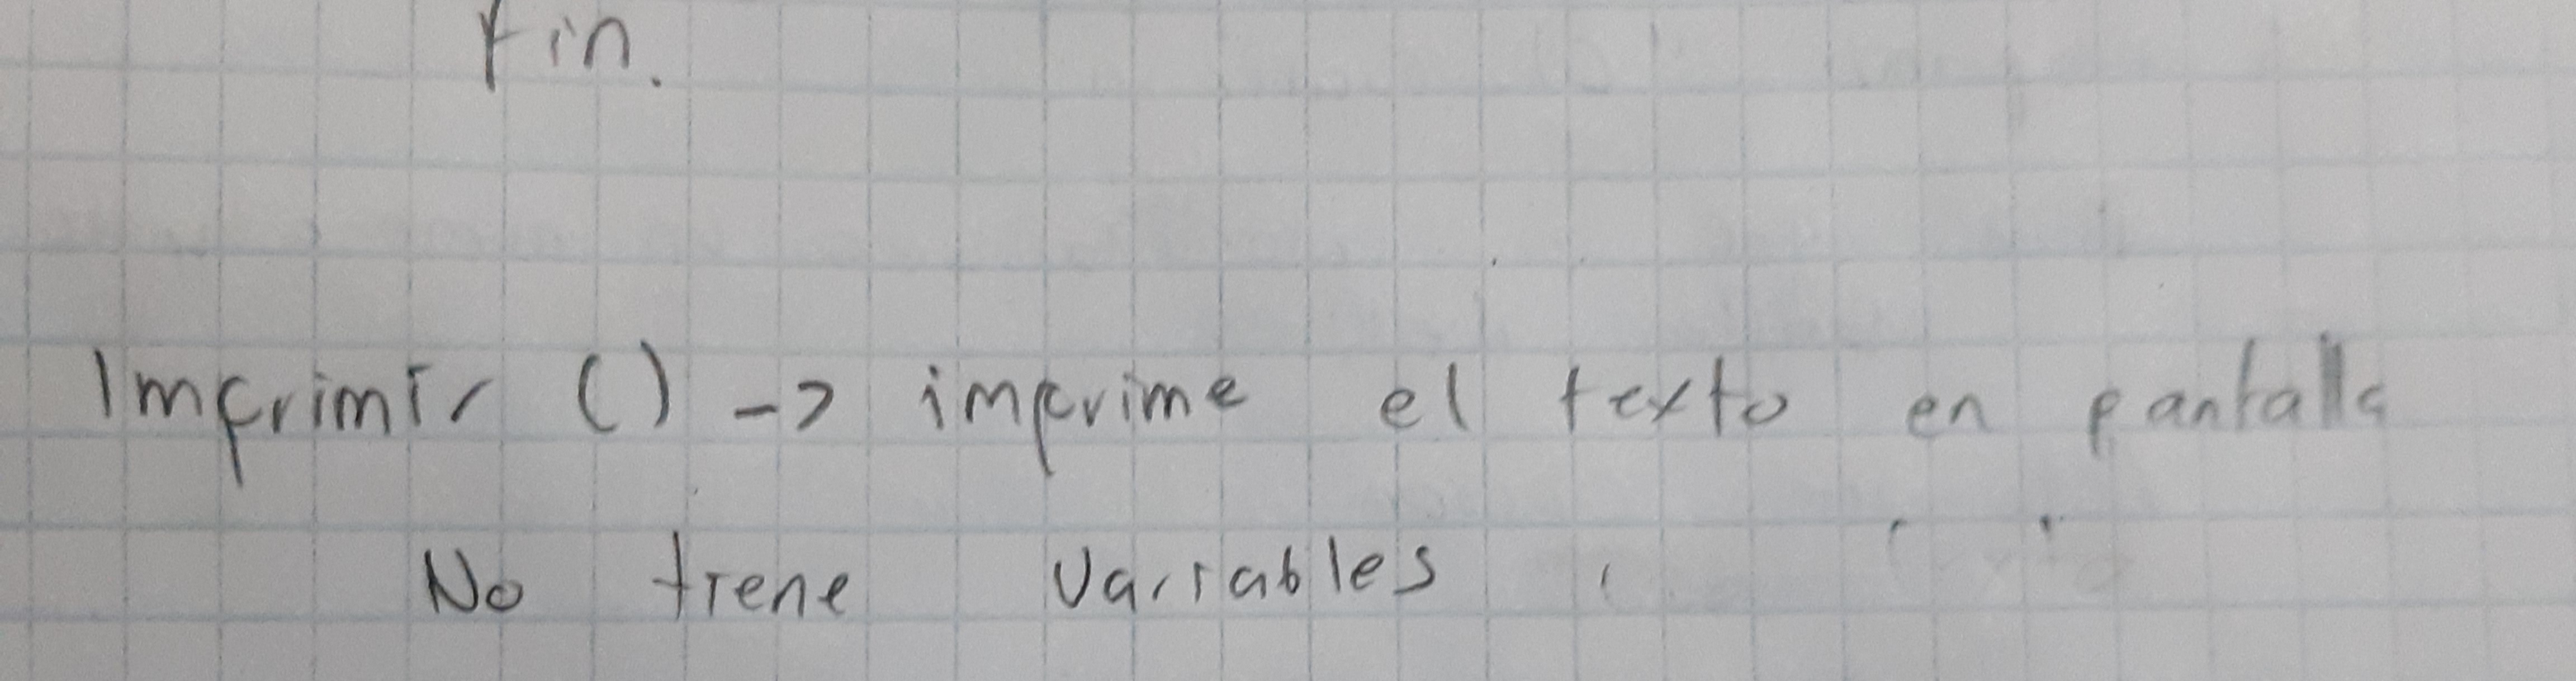 fin.
Imprimir () -> imprime el texto en pantalla
No tiene variables